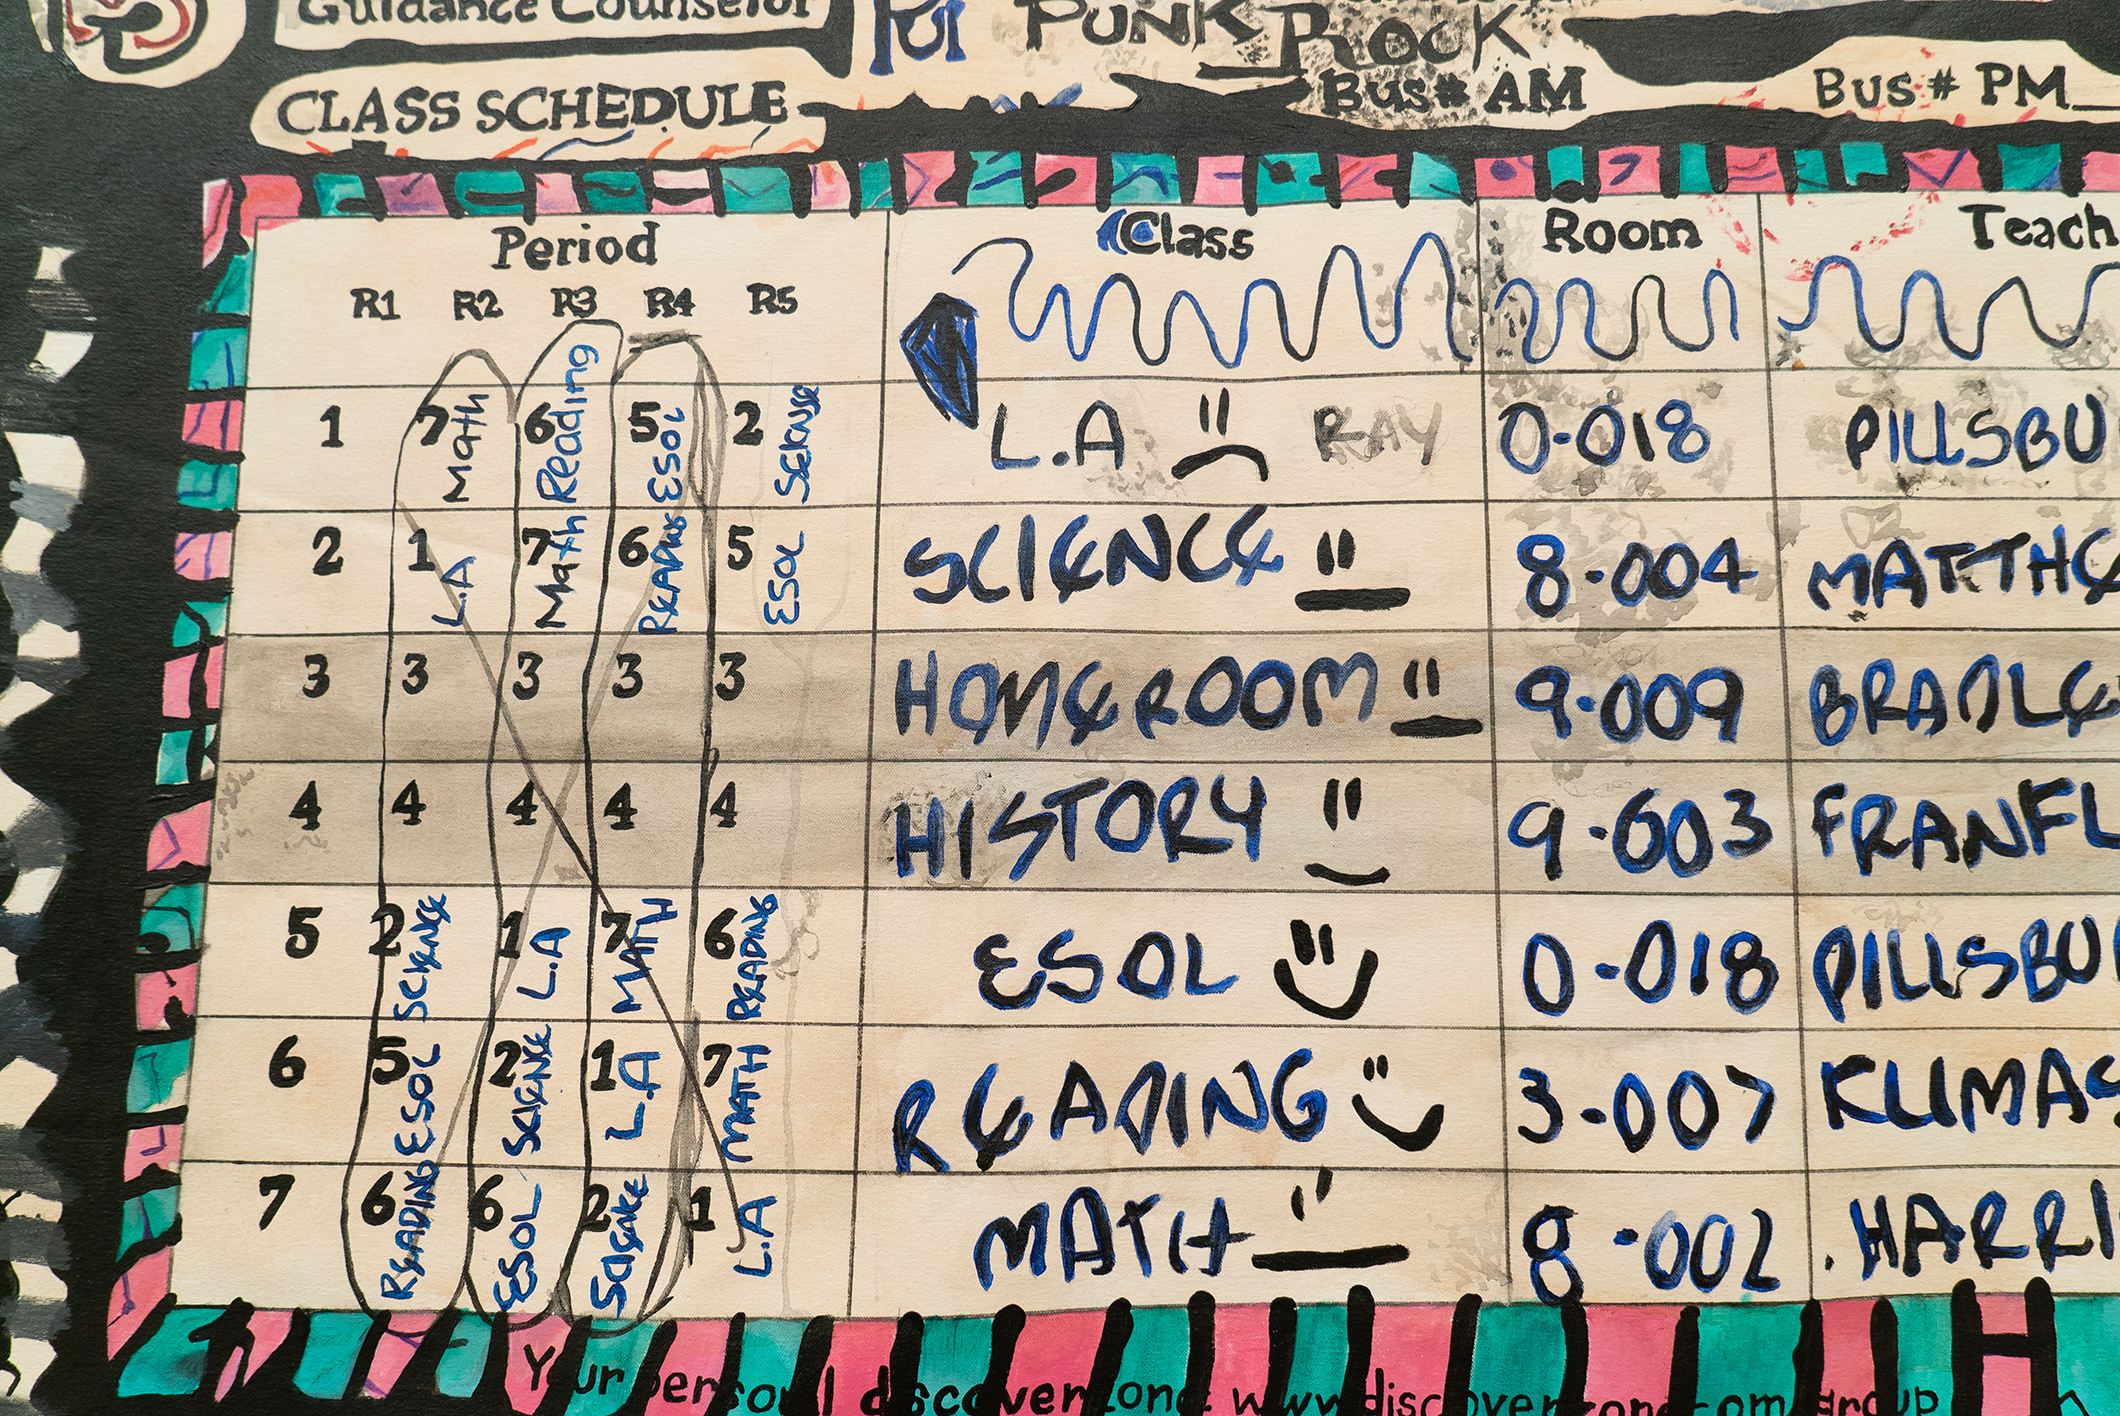 Guidance Counselor
PUNK ROCK
CLASS SCHEDULE
Bus# AM
Bus# PM
Period Class Room Teach
R1 R2 R3 R4 R5
1 7 Math 6 Reading 5 ESOL 2 SCIENSE L.A RAY 0-018 PILLSBU
2 1 L.A 7 Math 6 READING 5 ESOL SCIENCE 8-004 MATTHE
3 3 3 3 3 HOMEROOM 9-009 BRADLE
4 4 4 4 4 HISTORY 9-603 FRANFL
5 2 SCIENCE 1 L.A 7 MATH 6 READING ESOL 0-018 PILLSBU
6 5 ESOL 2 SCIENSE 1 L.A 7 MATH READING 3-007 KLIMAS
7 6 READING 6 ESOL 2 1 L.A MATH 8-002 HARRI
Your personal discover zone: www.discoverzone.com/group